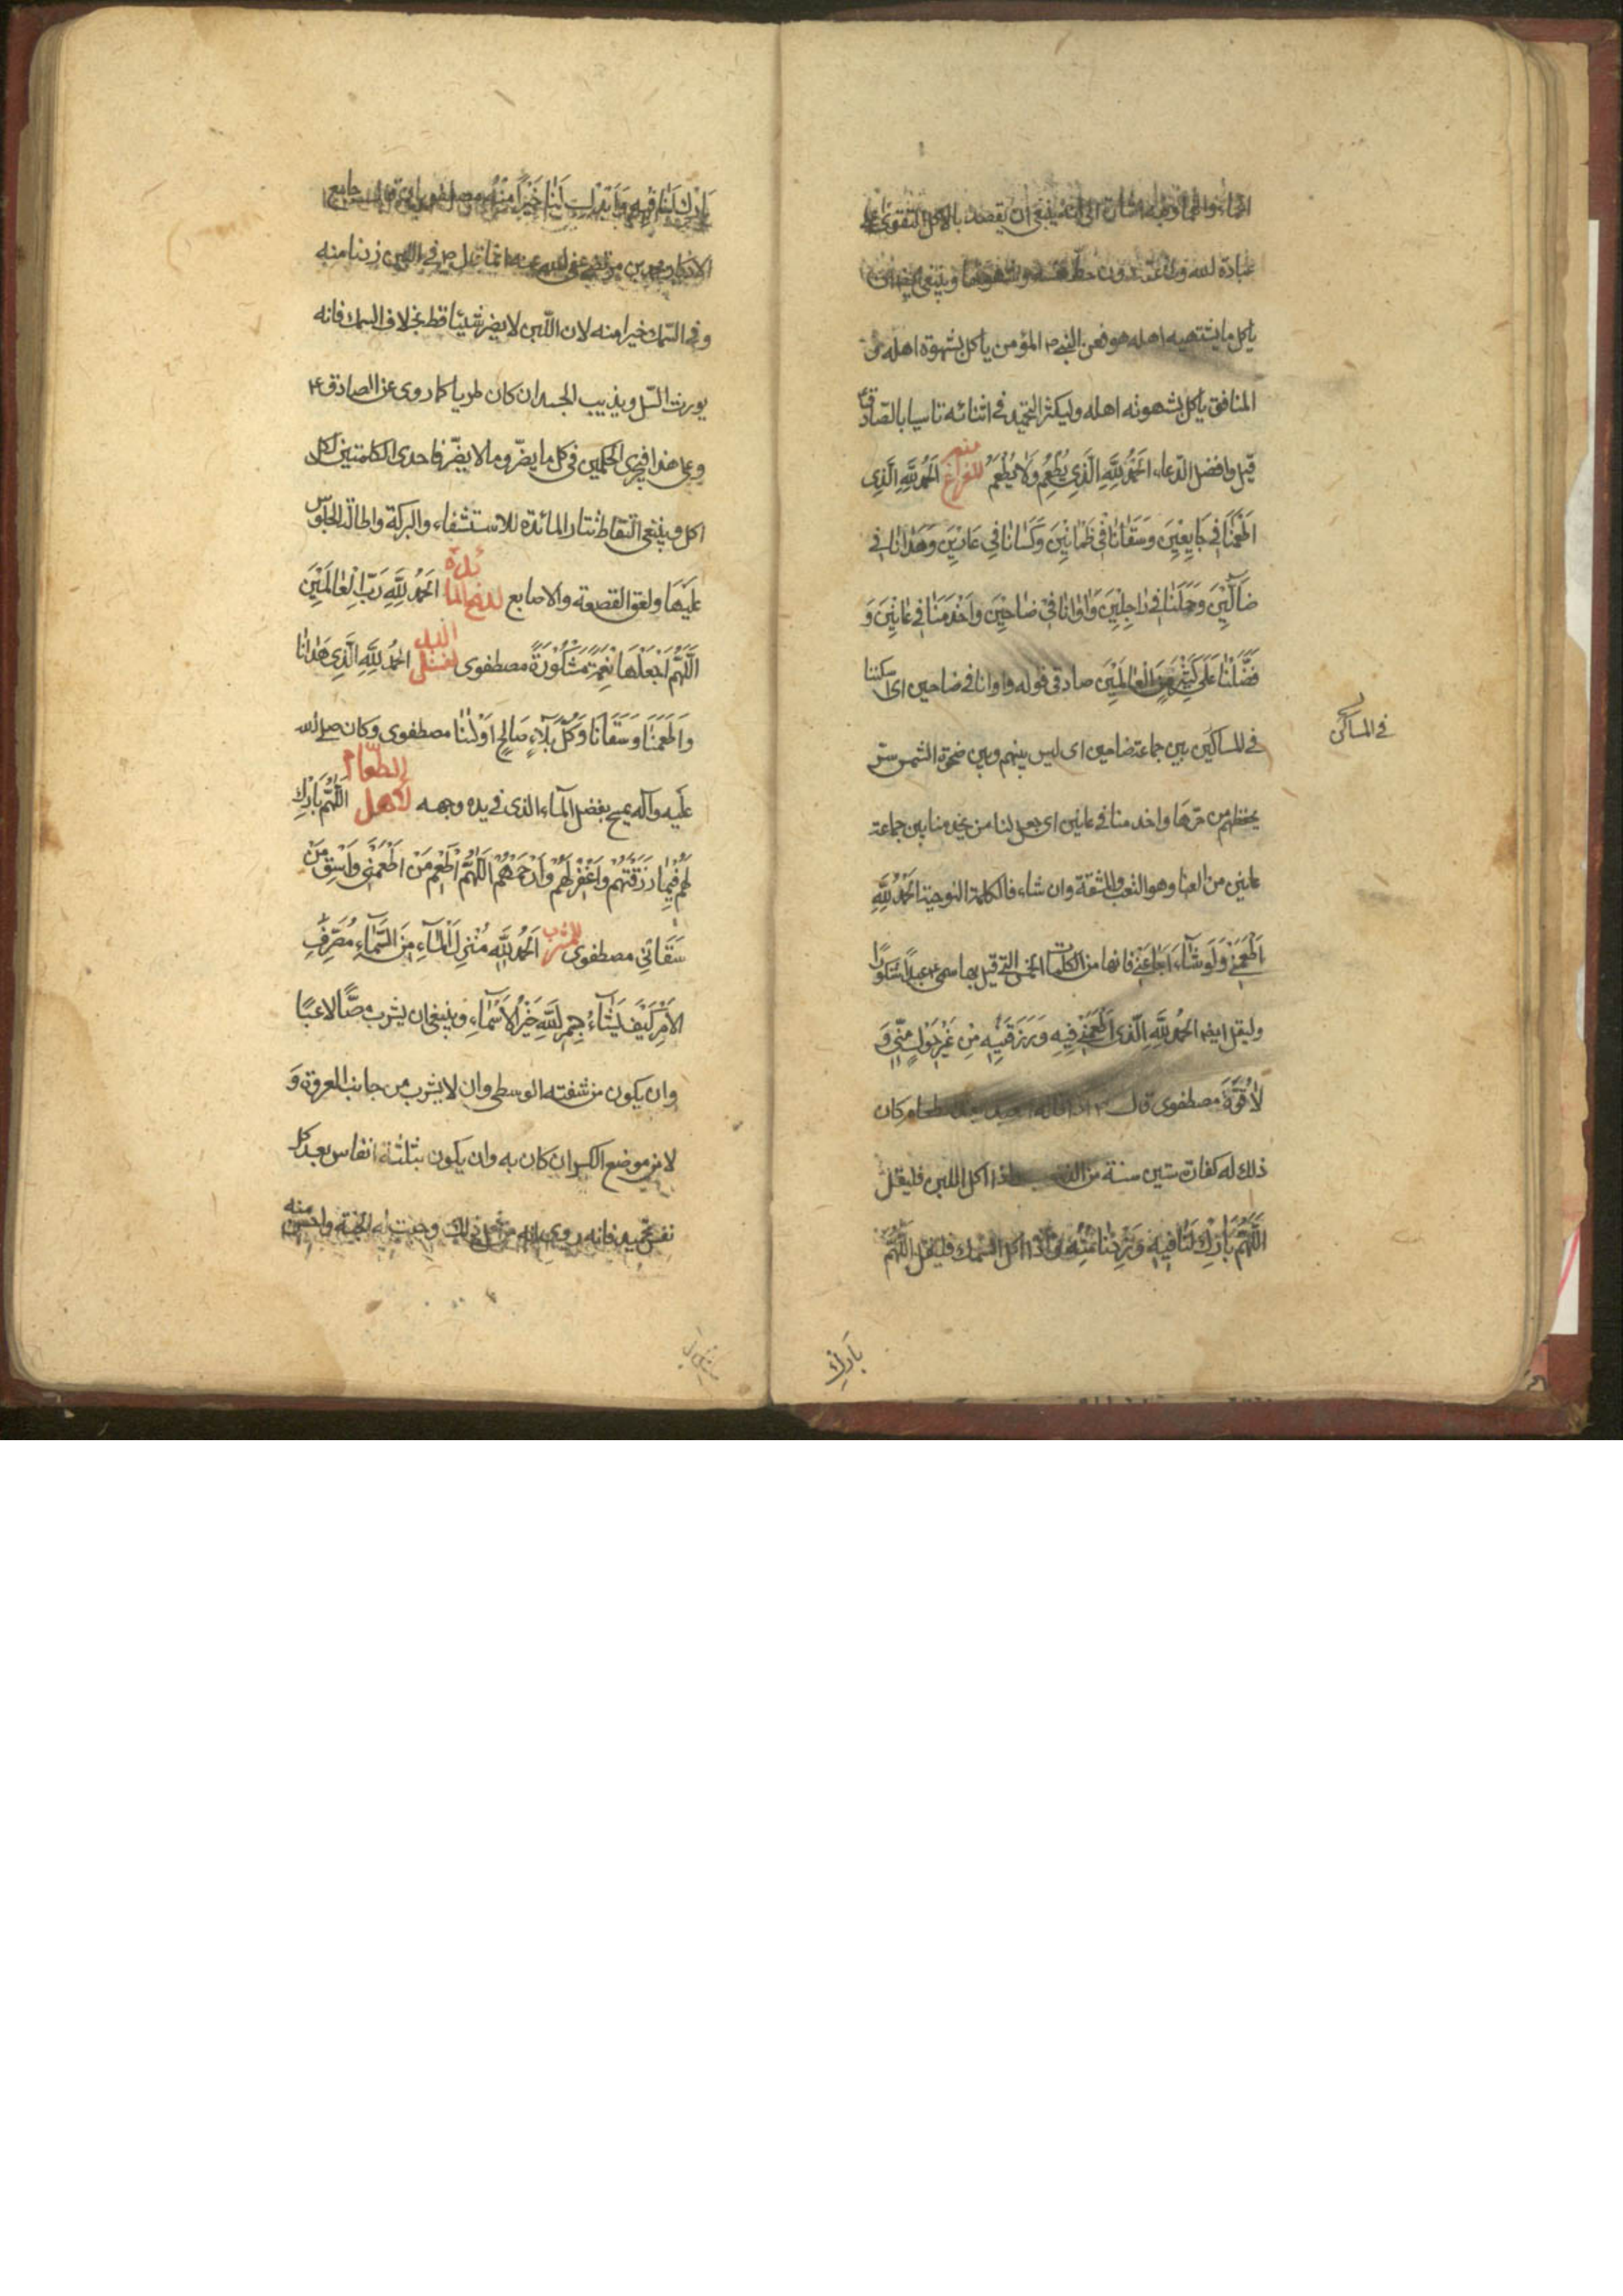 ينبغى ان يقصد بالاكل التقوى على
عبادة الله دون حظ نفسه وشهوتها وينبغى ايضا ان
ياكل ما يشتهيه اهله هو فعن النبى ص المؤمن ياكل بشهوة اهله و
المنافق ياكل بشهوته اهله وليكثر التحميد فى اثنائه تاسيا بالصادق ع
قيل وافضل الدعاء اَلْحَمْدُ لِلَّهِ الَّذِى يُطْعِمُ وَلَا يُطْعَمُ للفراغ منه اَلْحَمْدُ لِلَّهِ الَّذِى
اَطْعَمَنَا فِى جَايِعِينَ وَسَقَانَا فِى ظَمْانِينَ وَكَسَانَا فِى عَارِينَ وَهَدَانَا فِى
ضَالِّينَ وَحَمَلَنَا فِى رَاجِلِينَ وَاوَانَا فِى ضَاحِينَ وَاَخْدَمَنَا فِى عَانِينَ وَ
فَضَّلَنَا عَلَى كَثِيرٍ مِنَ الْعَالَمِينَ صادقى قوله واوانا فى ضاحين اى اسكننا
فى المساكن بين جماعة ضاحين اى ليس بينهم وبين ضحوة الشمس ستر
يحفظهم من حرها واخدمنا فى عانين اى جعل لنا من يخدمنا بين جماعة
عانين من العنا وهو التعب والمشقة وان شاء فالكلمة النوحية اَلْحَمْدُ لِلَّهِ
اَطْعَمَنِى وَلَوْ شَاءَ اَجَاعَنِى فانها من الكلمات الخمس التى قيل بها سمى ع عبدا شكورا
وليقل ايضا اَلْحَمْدُ لِلَّهِ الَّذِى اَطْعَمَنِى فِيهِ وَرَزَقَنِيهِ مِنْ غَيْرِ حَوْلٍ مِنِّى وَ
لَا قُوَّةَ مصطفوى قال ص اذا قاله بعد طعام كان
ذلك له كفارة ستين سنة من واذا اكل اللبن فليقل
اَللَّهُمَّ بَارِكْ لَنَا فِيهِ وَزِدْنَا مِنْهُ واذا اكل السمك فليقل اَللَّهُمَّ
بَارِك
فى المساكن
بَارِكْ لَنَا فِيهِ وَاَبْدِلْنَا خَيْرًا مِنْهُ مصطفوى جامع
محمد بن مرتضى عفى الله عنه انما قيل فى اللبن زدنا منه
وفى السمك خيرا منه لان اللبن لا يضر شيئا قط بخلاف السمك فانه
يورث السل ويذيب الجسد ان كان طريا كما روى عن الصادق ع
وعلى هذا فيجرى الحكمين فى كل ما يضر وما لا يضر فاحدى الكلمتين لكل
اكل وينبغى التقاط نثار المائدة للاستشفاء والبركة واطالة الجلوس
عليها ولعق القصعة والاصابع لرفع المائدة اَلْحَمْدُ لِلَّهِ رَبِّ الْعَالَمِينَ
اَللَّهُمَّ اجْعَلْهَا نِعْمَةً مَشْكُورَةً مصطفوى لغسل اليد اَلْحَمْدُ لِلَّهِ الَّذِى هَدَانَا
وَاَطْعَمَنَا وَسَقَانَا وَكُلَّ بَلَاءٍ صَالِحٍ اَوْلَانَا مصطفوى وكان صلى الله
عليه وآله يمسح بفضل الماء الذى فى يده وجهه لاهل الطعام اَللَّهُمَّ بَارِكْ
لَهُمْ فِيمَا رَزَقْتَهُمْ وَاغْفِرْ لَهُمْ وَارْحَمْهُمْ اَللَّهُمَّ اَطْعِمْ مَنْ اَطْعَمَنِى وَاسْقِ مَنْ
سَقَانِى مصطفوى للشرب اَلْحَمْدُ لِلَّهِ مُنْزِلِ الْمَاءِ مِنَ السَّمَاءِ مُصَرِّفِ
الْاَمْرِ كَيْفَ يَشَاءُ بِسْمِ اللَّهِ خَيْرِ الْاَسْمَاءِ وينبغى ان يشرب مصًّا لا عبًّا
وان يكون من شفته الوسطى وان لا يشرب من جانب العروة و
لا من موضع الكسر ان كان به وان يكون بثلثة انفاس بعد كل
نفس تحميد فانه روى انه من فعل ذلك وجبت له الجنة